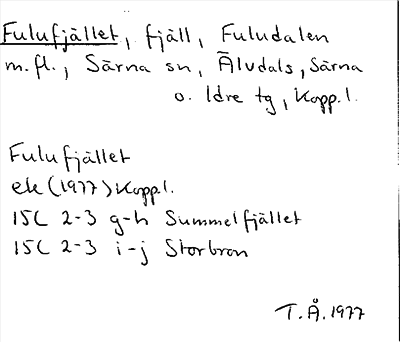 Fulufjället, fjäll, Fuludalen
m.fl., Särna sn, Älvdals, Särna
o. Idre tg, Kopp.l.
Fulufjället
ek (1977) Kopp.l.
15C 2-3 g-h Summelfjället
15C 2-3 i-j Storbron
T.Å. 1977